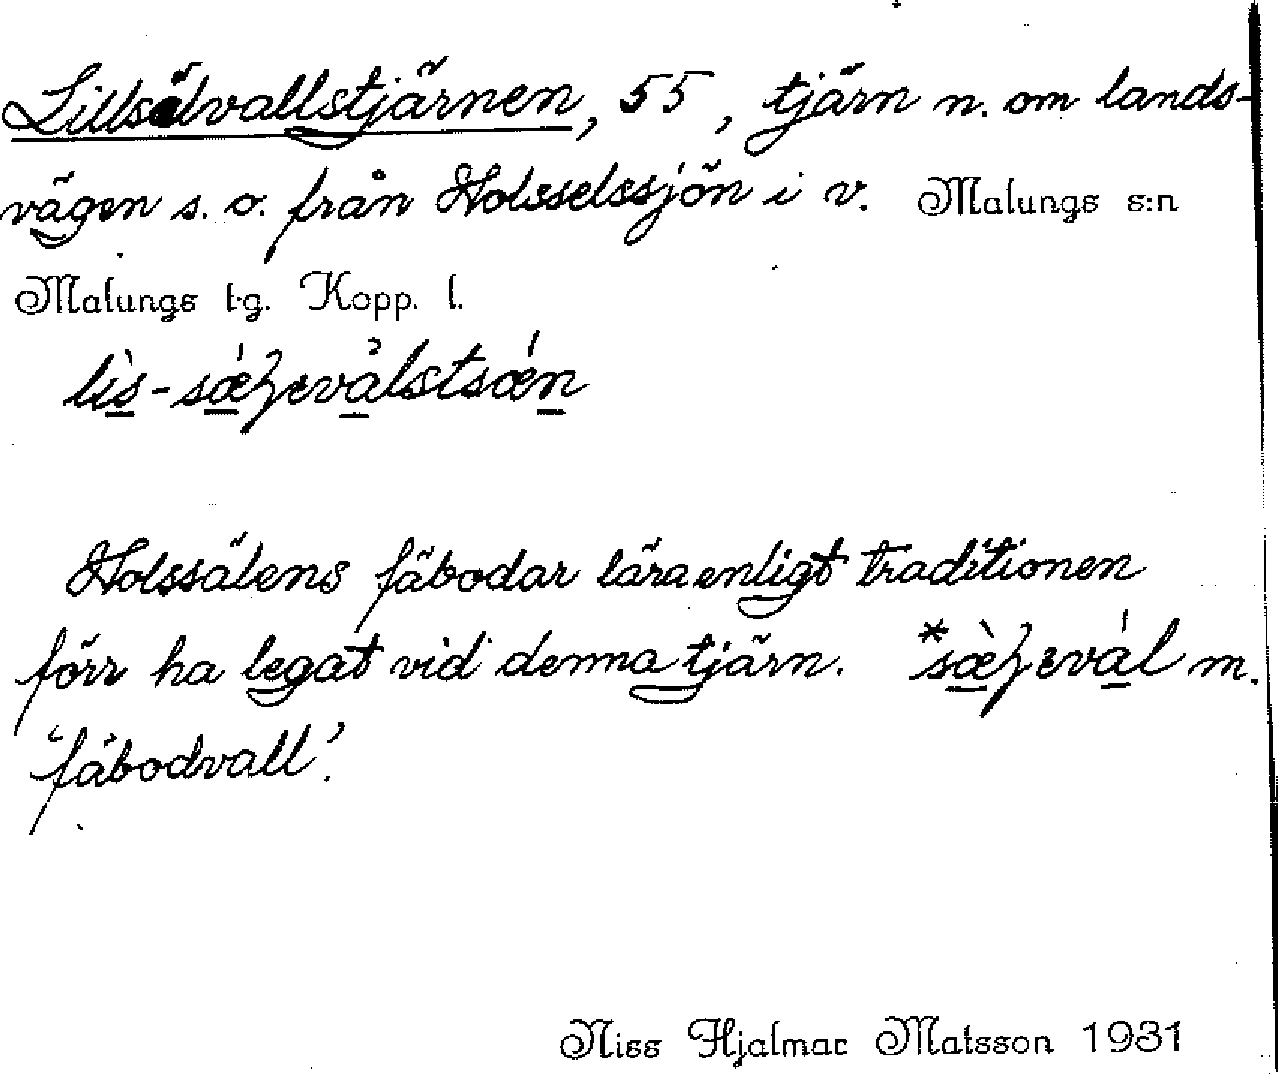 Lillsälvallstjärnen, 55, tjärn n. om lands-
vägen s. o. från Holsselssjön i v. Malungs s:n
Malungs tg. Kopp. l.
Holssälens fäbodar lära enligt traditionen
förr ha legat vid denna tjärn. m.
'fäbodvall'.
Niss Hjalmar Matsson 1931